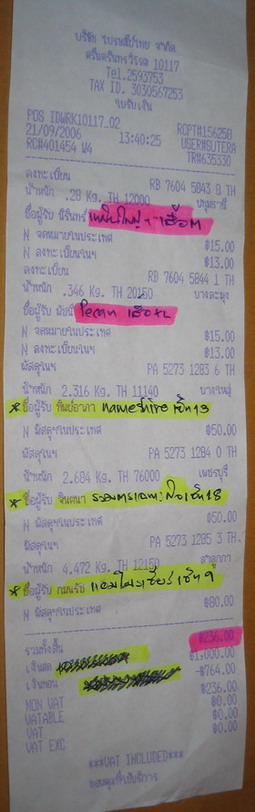 บริษัท ไปรษณีย์ไทย จำกัด
ศรีนครินทรวิโรฒ 10117
Tel.2593753
TAX ID. 3030567253
ใบรับเงิน
POS IDWRK10117.02 RCPT#156258
21/09/2006 13:40:25 USER#SUTERA
RC#401454 W4 TR#635330
ลงทะเบียน RB 7604 5843 0 TH
น้ำหนัก .28 Kg. TH 12000 ปทุมธานี
ชื่อผู้รับ
N จดหมายในประเทศ ฿15.00
N ลงทะเบียนในฯ ฿13.00
ลงทะเบียน RB 7604 5844 1 TH
น้ำหนัก .346 Kg. TH 20150 บางละมุง
ชื่อผู้รับ
N จดหมายในประเทศ ฿15.00
N ลงทะเบียนในฯ ฿13.00
พัสดุในฯ PA 5273 1283 6 TH
น้ำหนัก 2.316 Kg. TH 11140 บางใหญ่
ชื่อผู้รับ ทิพย์อาภา
N พัสดุฯในประเทศ ฿50.00
พัสดุในฯ PA 5273 1284 0 TH
น้ำหนัก 2.684 Kg. TH 76000 เพชรบุรี
ชื่อผู้รับ จินตนา
N พัสดุฯในประเทศ ฿50.00
พัสดุในฯ PA 5273 1285 3 TH
น้ำหนัก 4.472 Kg. TH 12150 ลำลูกกา
ชื่อผู้รับ กมลรับ
N พัสดุฯในประเทศ ฿80.00
รวมทั้งสิ้น ฿236.00
เงินสด ฿1,000.00
เงินทอน -฿764.00
NON VAT ฿236.00
VATABLE ฿0.00
VAT ฿0.00
VAT EXC ฿0.00
***VAT INCLUDED***
ขอบคุณที่ใช้บริการ